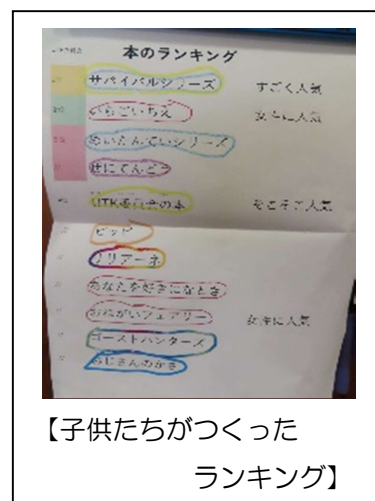 本のランキング
サバイバルシリーズ すごく人気
いちごいちえ 女子に人気
めいたんていシリーズ
ぜにてんどう
委員会の本 そこそこ人気
ピッピ
リアーネ
あなたを好きになるとき
おねがいフェアリー 女性に人気
ゴーストハンターズ
おじさんのかさ
【子供たちがつくった
ランキング】